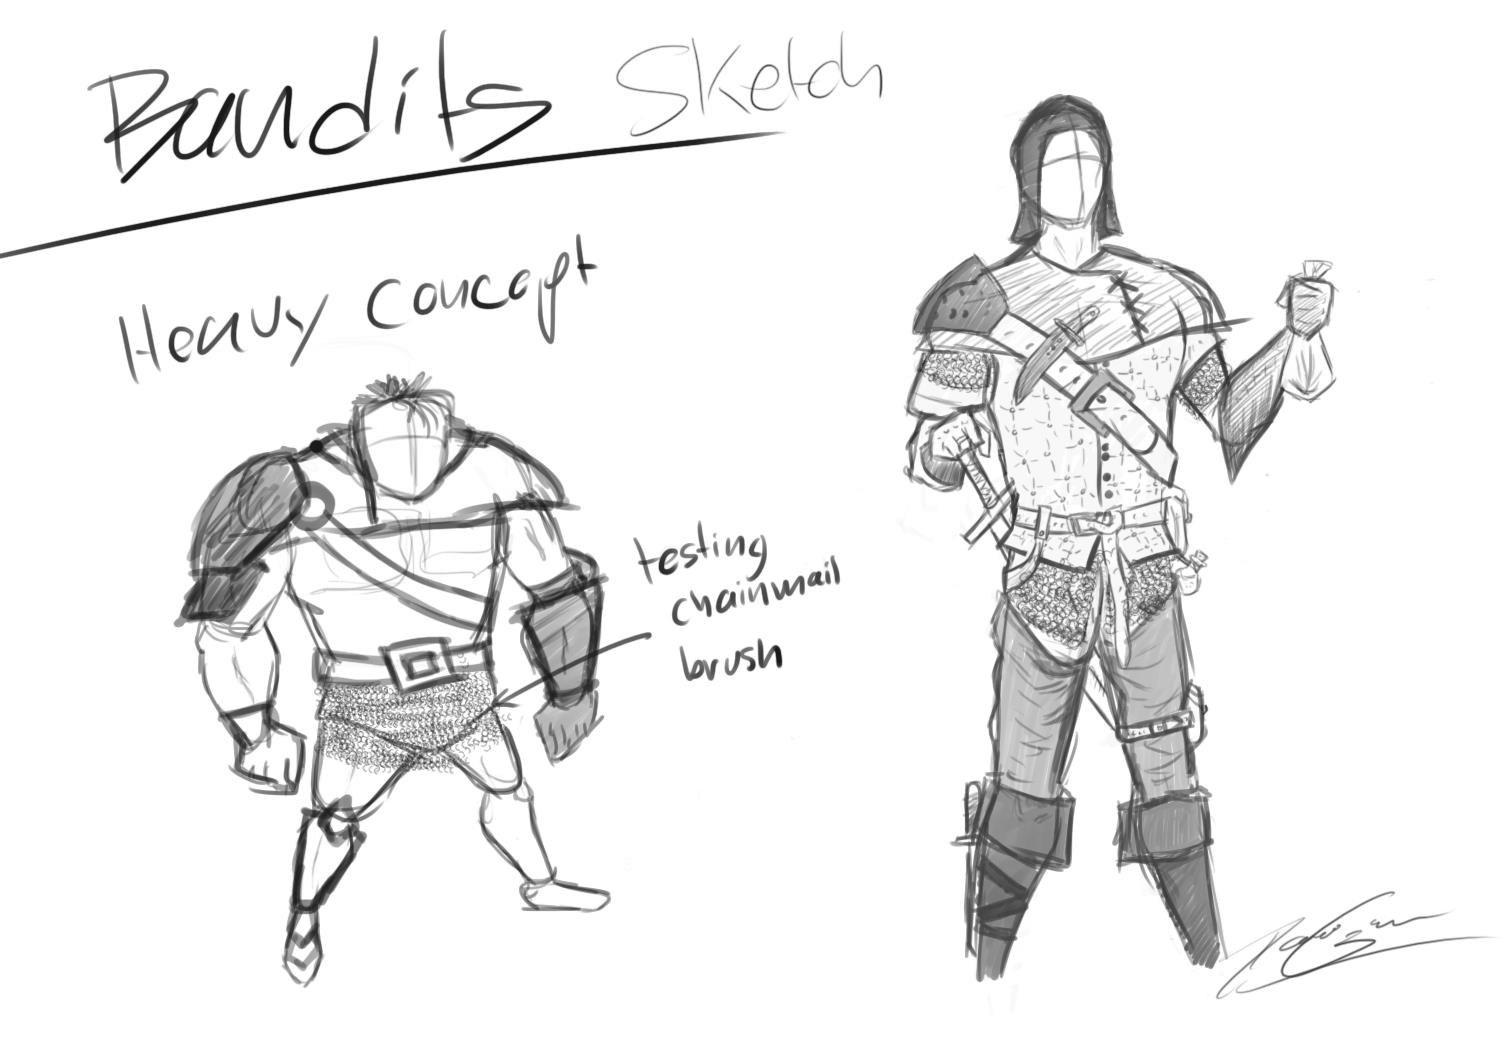 Bandits Sketch
Heavy concept
testing
chainmail
brush